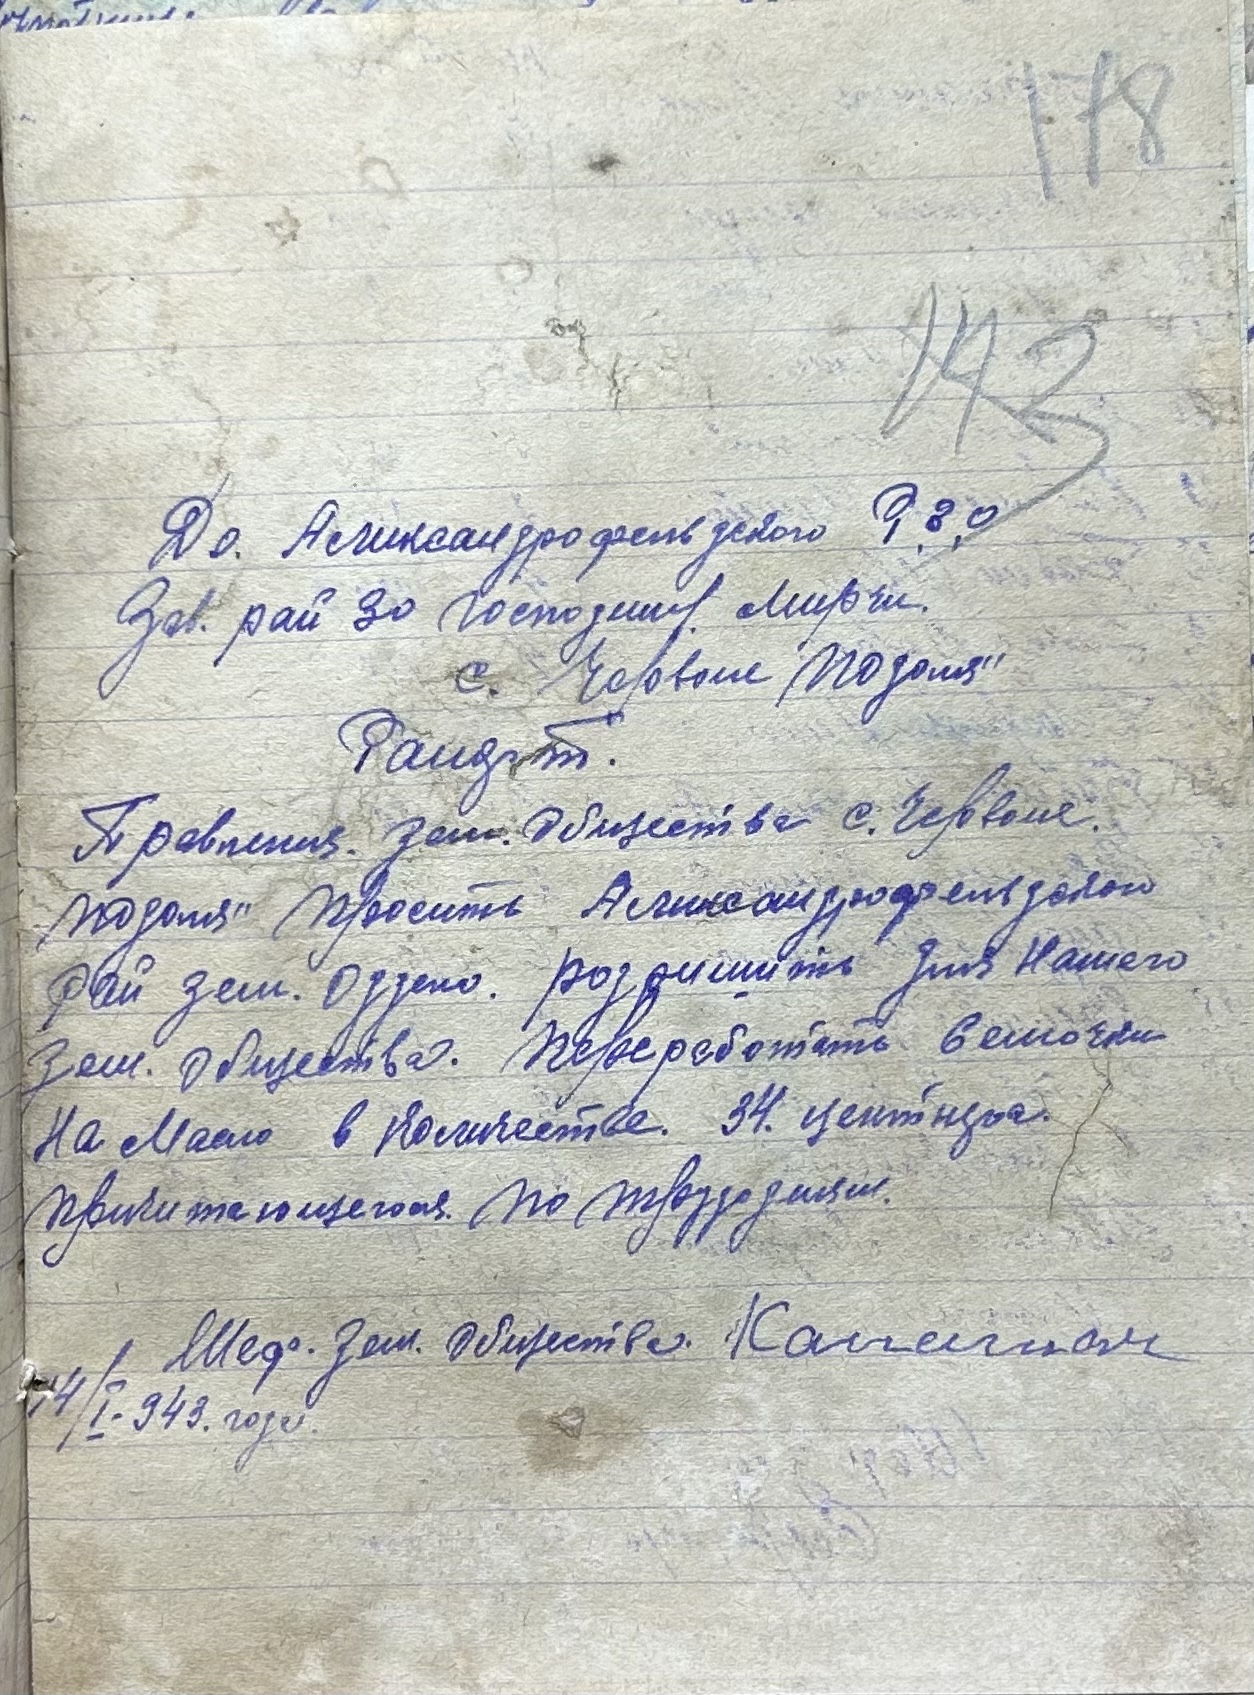 178
143
До. Алиександрофельдского Р.З.О
Зав. рай ЗО Господину. Мирчи.
с. Червоне Подоля"
Рапорт.
Правления. зем. Общества с. Червоне.
Подоля" Просить Алиександрофельдского
Рай зем. Отдела. розришить для Нашего
зем. Общества. Переработать Семечки
На Масло в Количестве. 34. центнера.
причитающегося. По трудодням.
Шеф. зем. Общества.
14/I-943. года.